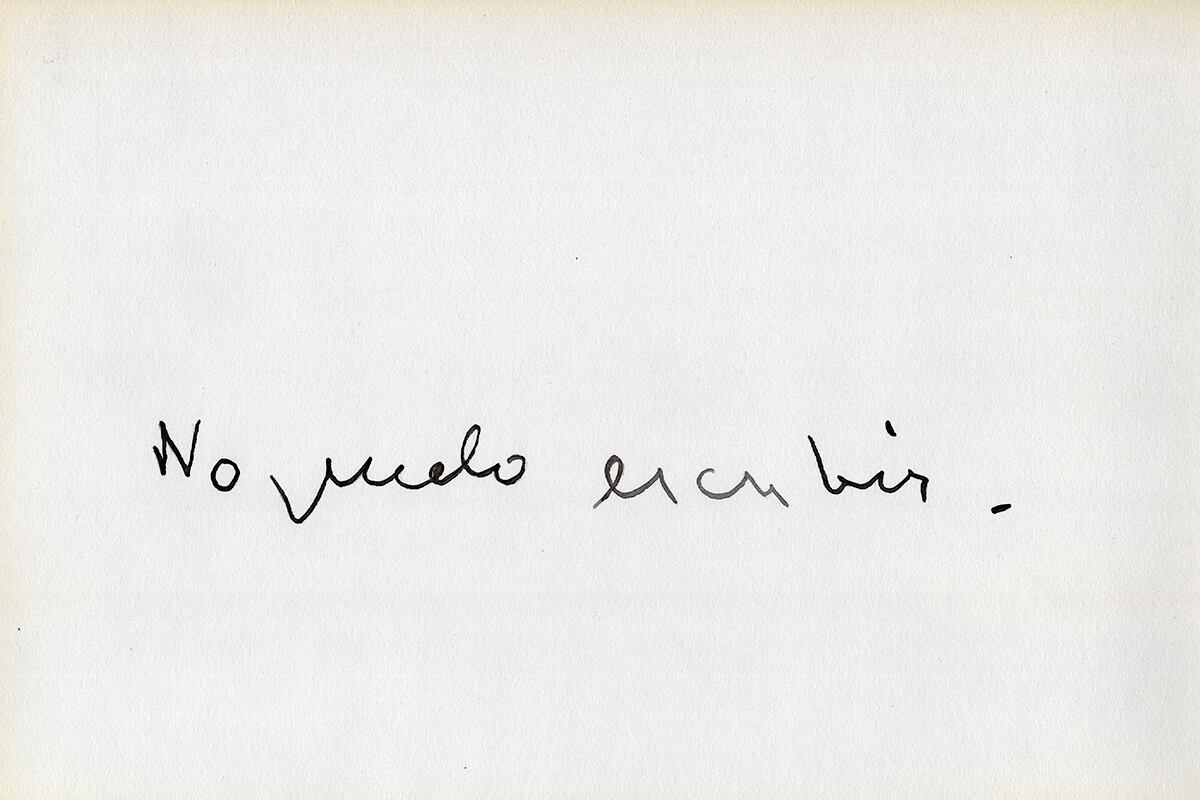 No puedo escribir.